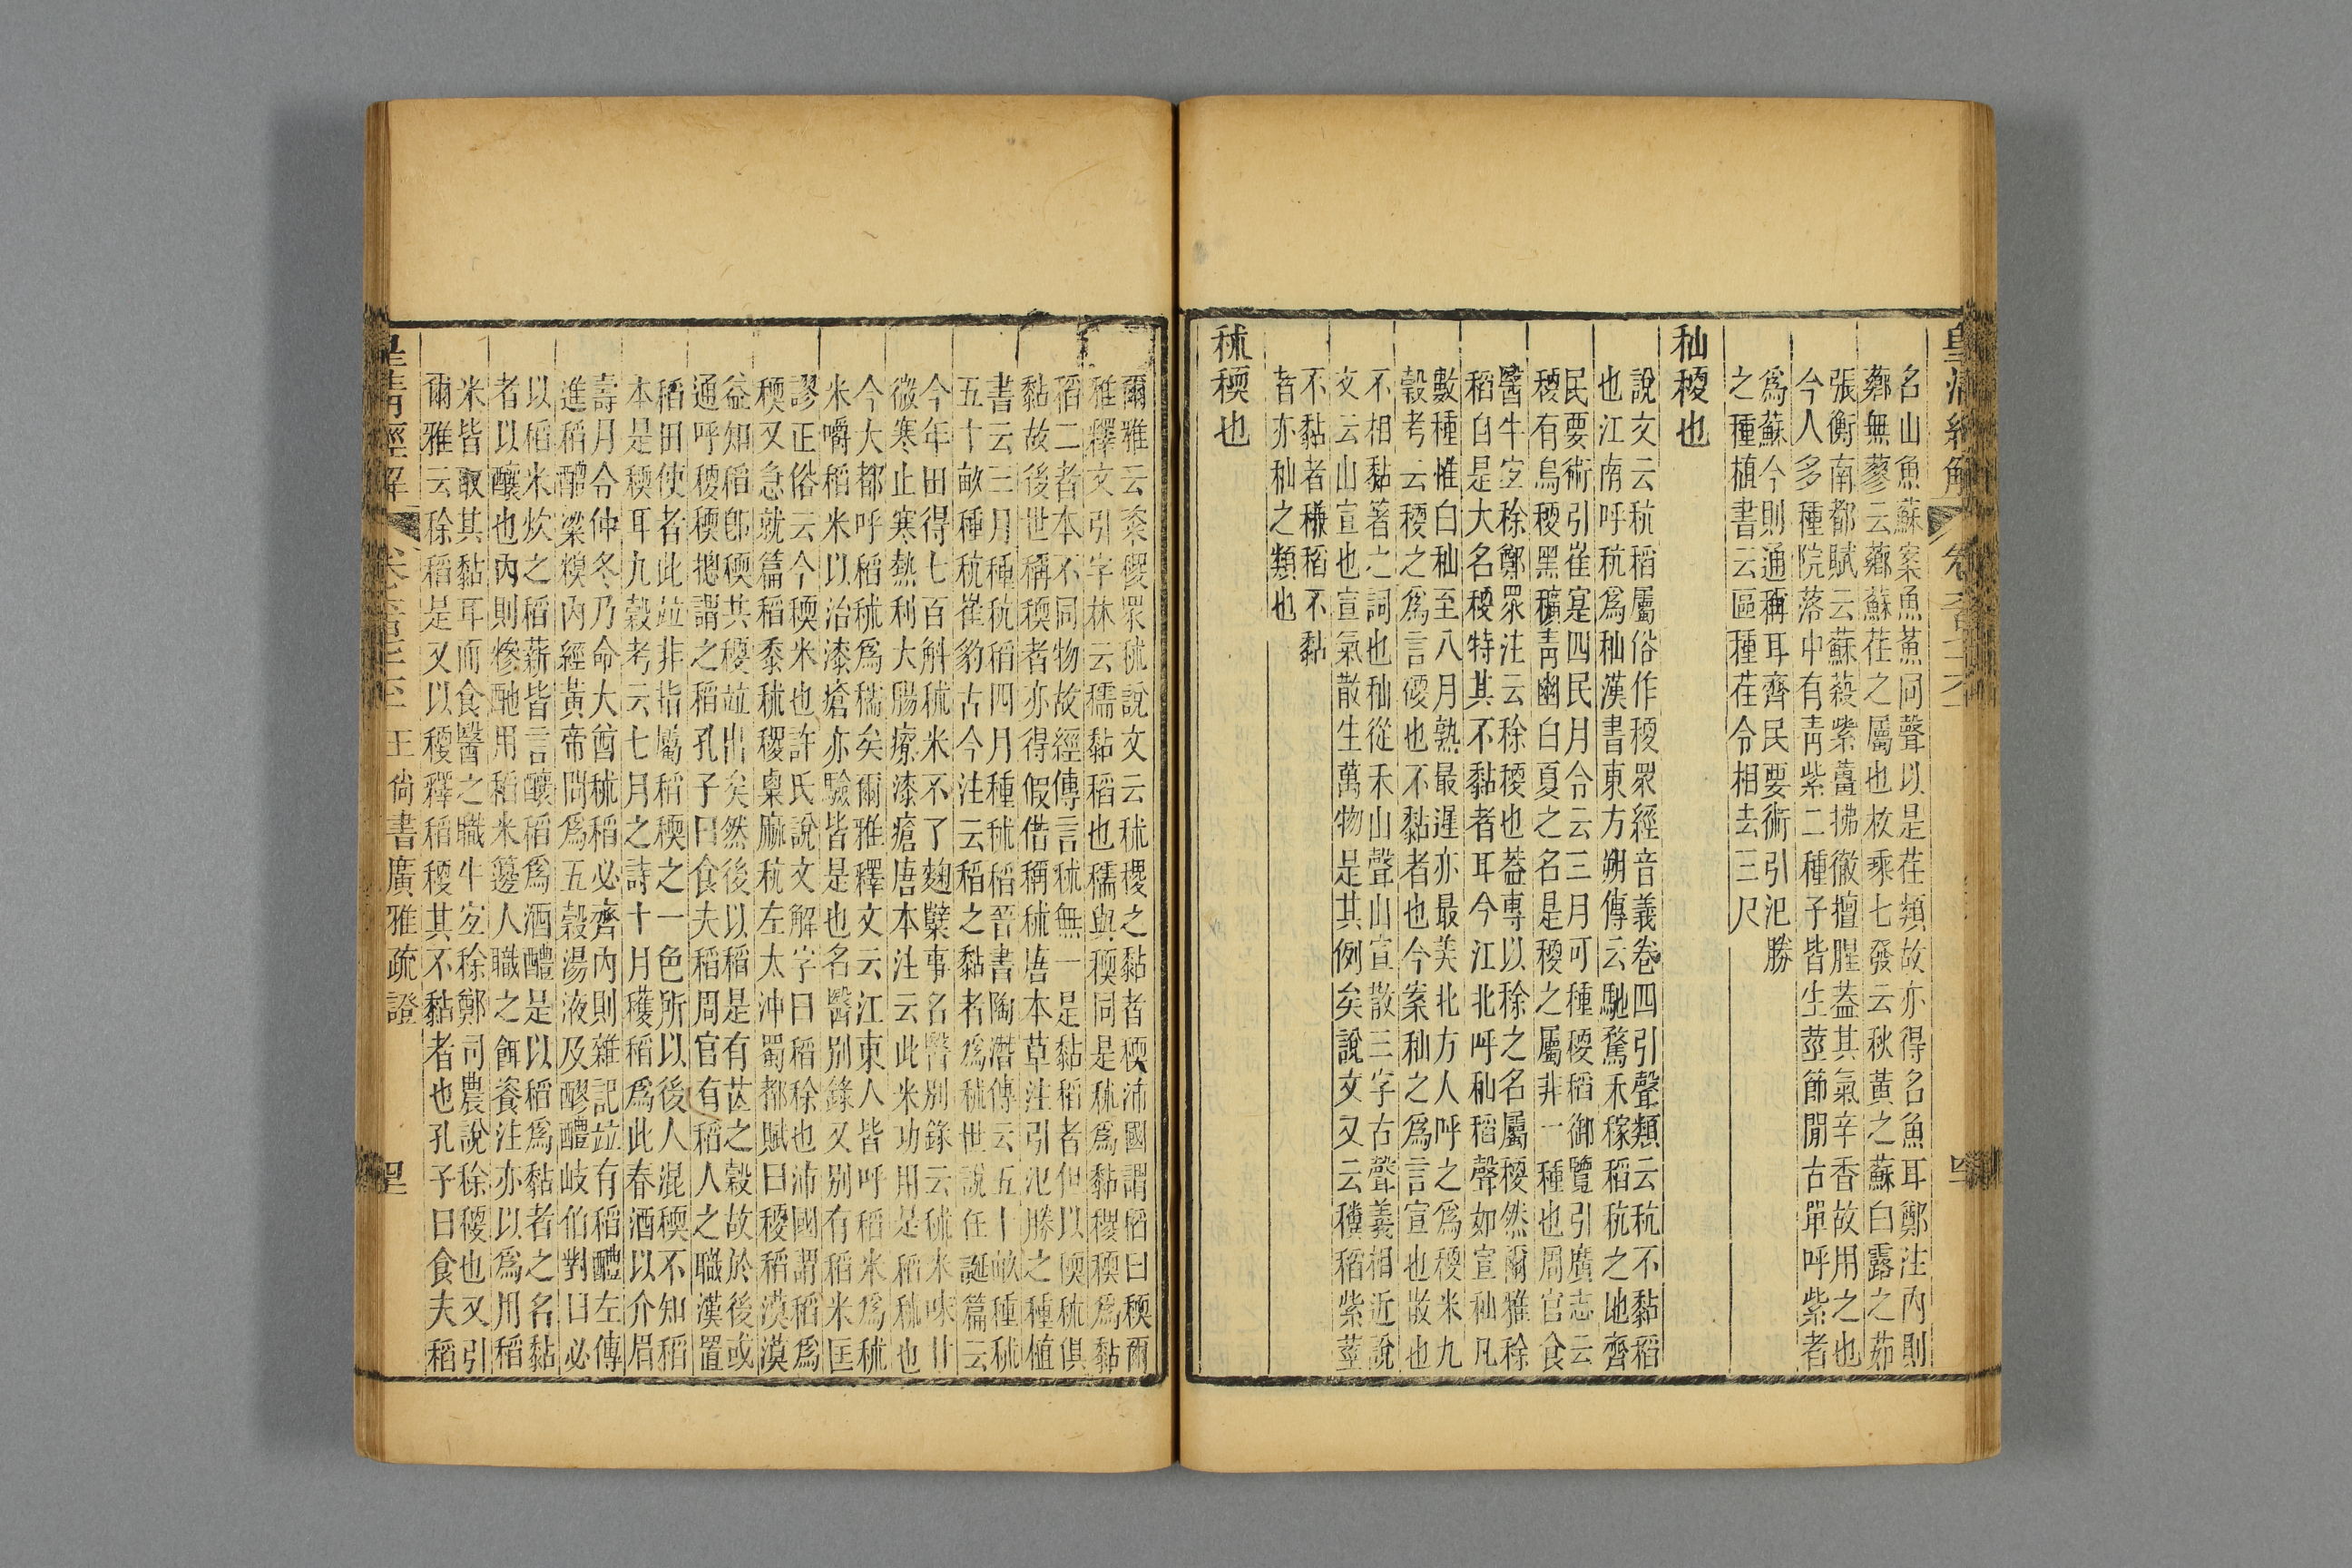 皇清經解
名山魚蘇案魚薰同聲以是荏類故亦得名魚耳鄭注內則
薌無蓼云薌蘇荏之屬也枚乘七發云秋黃之蘇白露之茹
張衡南都賦云蘇蔱紫薑拂徹羶腥葢其氣辛香故用之也
今人多種院落中有靑紫二種子皆生莖節閒古單呼紫者
爲蘇今則通稱耳齊民要術引氾勝
之種植書云區種荏令相去三尺
秈稉也
說文云秔稻屬俗作稉眾經音義卷四引聲類云秔不黏稻
也江南呼秔爲秈漢書東方朔傳云馳騖禾稼稻秔之地齊
民要術引崔寔四民月令云三月可種稉稻御覽引廣志云
稉有烏稉黑穬靑幽白夏之名是稉之屬非一種也周官食
醫牛宐稌鄭眾注云稌稉也葢專以稌之名屬稉然爾雅稌
稻自是大名稉特其不黏者耳今江北呼秈稻聲如宣秈凡
數種惟白秈至八月熟最遲亦最美北方人呼之爲稉米九
穀考云稉之爲言硬也不黏者也今案秈之爲言宣也散也
不相黏著之詞也秈從禾山聲山宣散三字古聲義相近說
文云山宣也宣氣散生萬物是其例矣說文又云穳稻紫莖
不黏者䆂稻不黏
者亦秈之類也
秫稬也
爾雅云粢稷眾秫說文云秫稷之黏者稬沛國謂稻曰稬爾
雅釋文引字林云穤黏稻也穤與稬同是秫爲黏稷稬爲黏
稻二者本不同物故經傳言秫無一是黏稻者但以稬秫俱
黏故後世稱稬者亦得假借稱秫唐本草注引氾勝之種植
書云三月種秔稻四月種秫稻晉書陶潛傳云五十畝種秫
五十畝種秔崔豹古今注云稻之黏者爲秫世說任誕篇云
今年田得七百斛秫米不了麴糱事名醫別錄云秫米味甘
微寒止寒熱利大腸療漆瘡唐本注云此米功用是稻秫也
今大都呼稻秫爲穤矣爾雅釋文云江東人皆呼稻米爲秫
米嚼稻米以治漆瘡亦驗皆是也名醫別錄又別有稻米匡
謬正俗云今稬米也許氏說文解字曰稻稌也沛國謂稻爲
稬又急就篇稻黍秫稷粟麻秔左太沖蜀都賦曰稉稻漠漠
益知稻卽稬其稉竝出矣然後以稻是有芒之穀故於後或
通呼稉稬摠謂之稻孔子曰食夫稻周官有稻人之職漢置
稻田使者此竝非指屬稻稬之一色所以後人混稬不知稻
本是稬耳九穀考云七月之詩十月穫稻爲此春酒以介眉
壽月令仲冬乃命大酋秫稻必齊內則雜記竝有稻醴左傳
進稻醴粱糗內經黃帝問爲五穀湯液及醪醴岐伯對曰必
以稻米炊之稻薪皆言釀稻爲酒醴是以稻爲黏者之名黏
者以釀也內則糝酏用稻米籩人職之餌餈注亦以爲用稻
米皆取其黏耳而食醫之職牛宐稌鄭司農說稌稉也又引
爾雅云稌稻是又以稉釋稻稉其不黏者也孔子曰食夫稻
皇淸經解
王尙書廣雅疏證